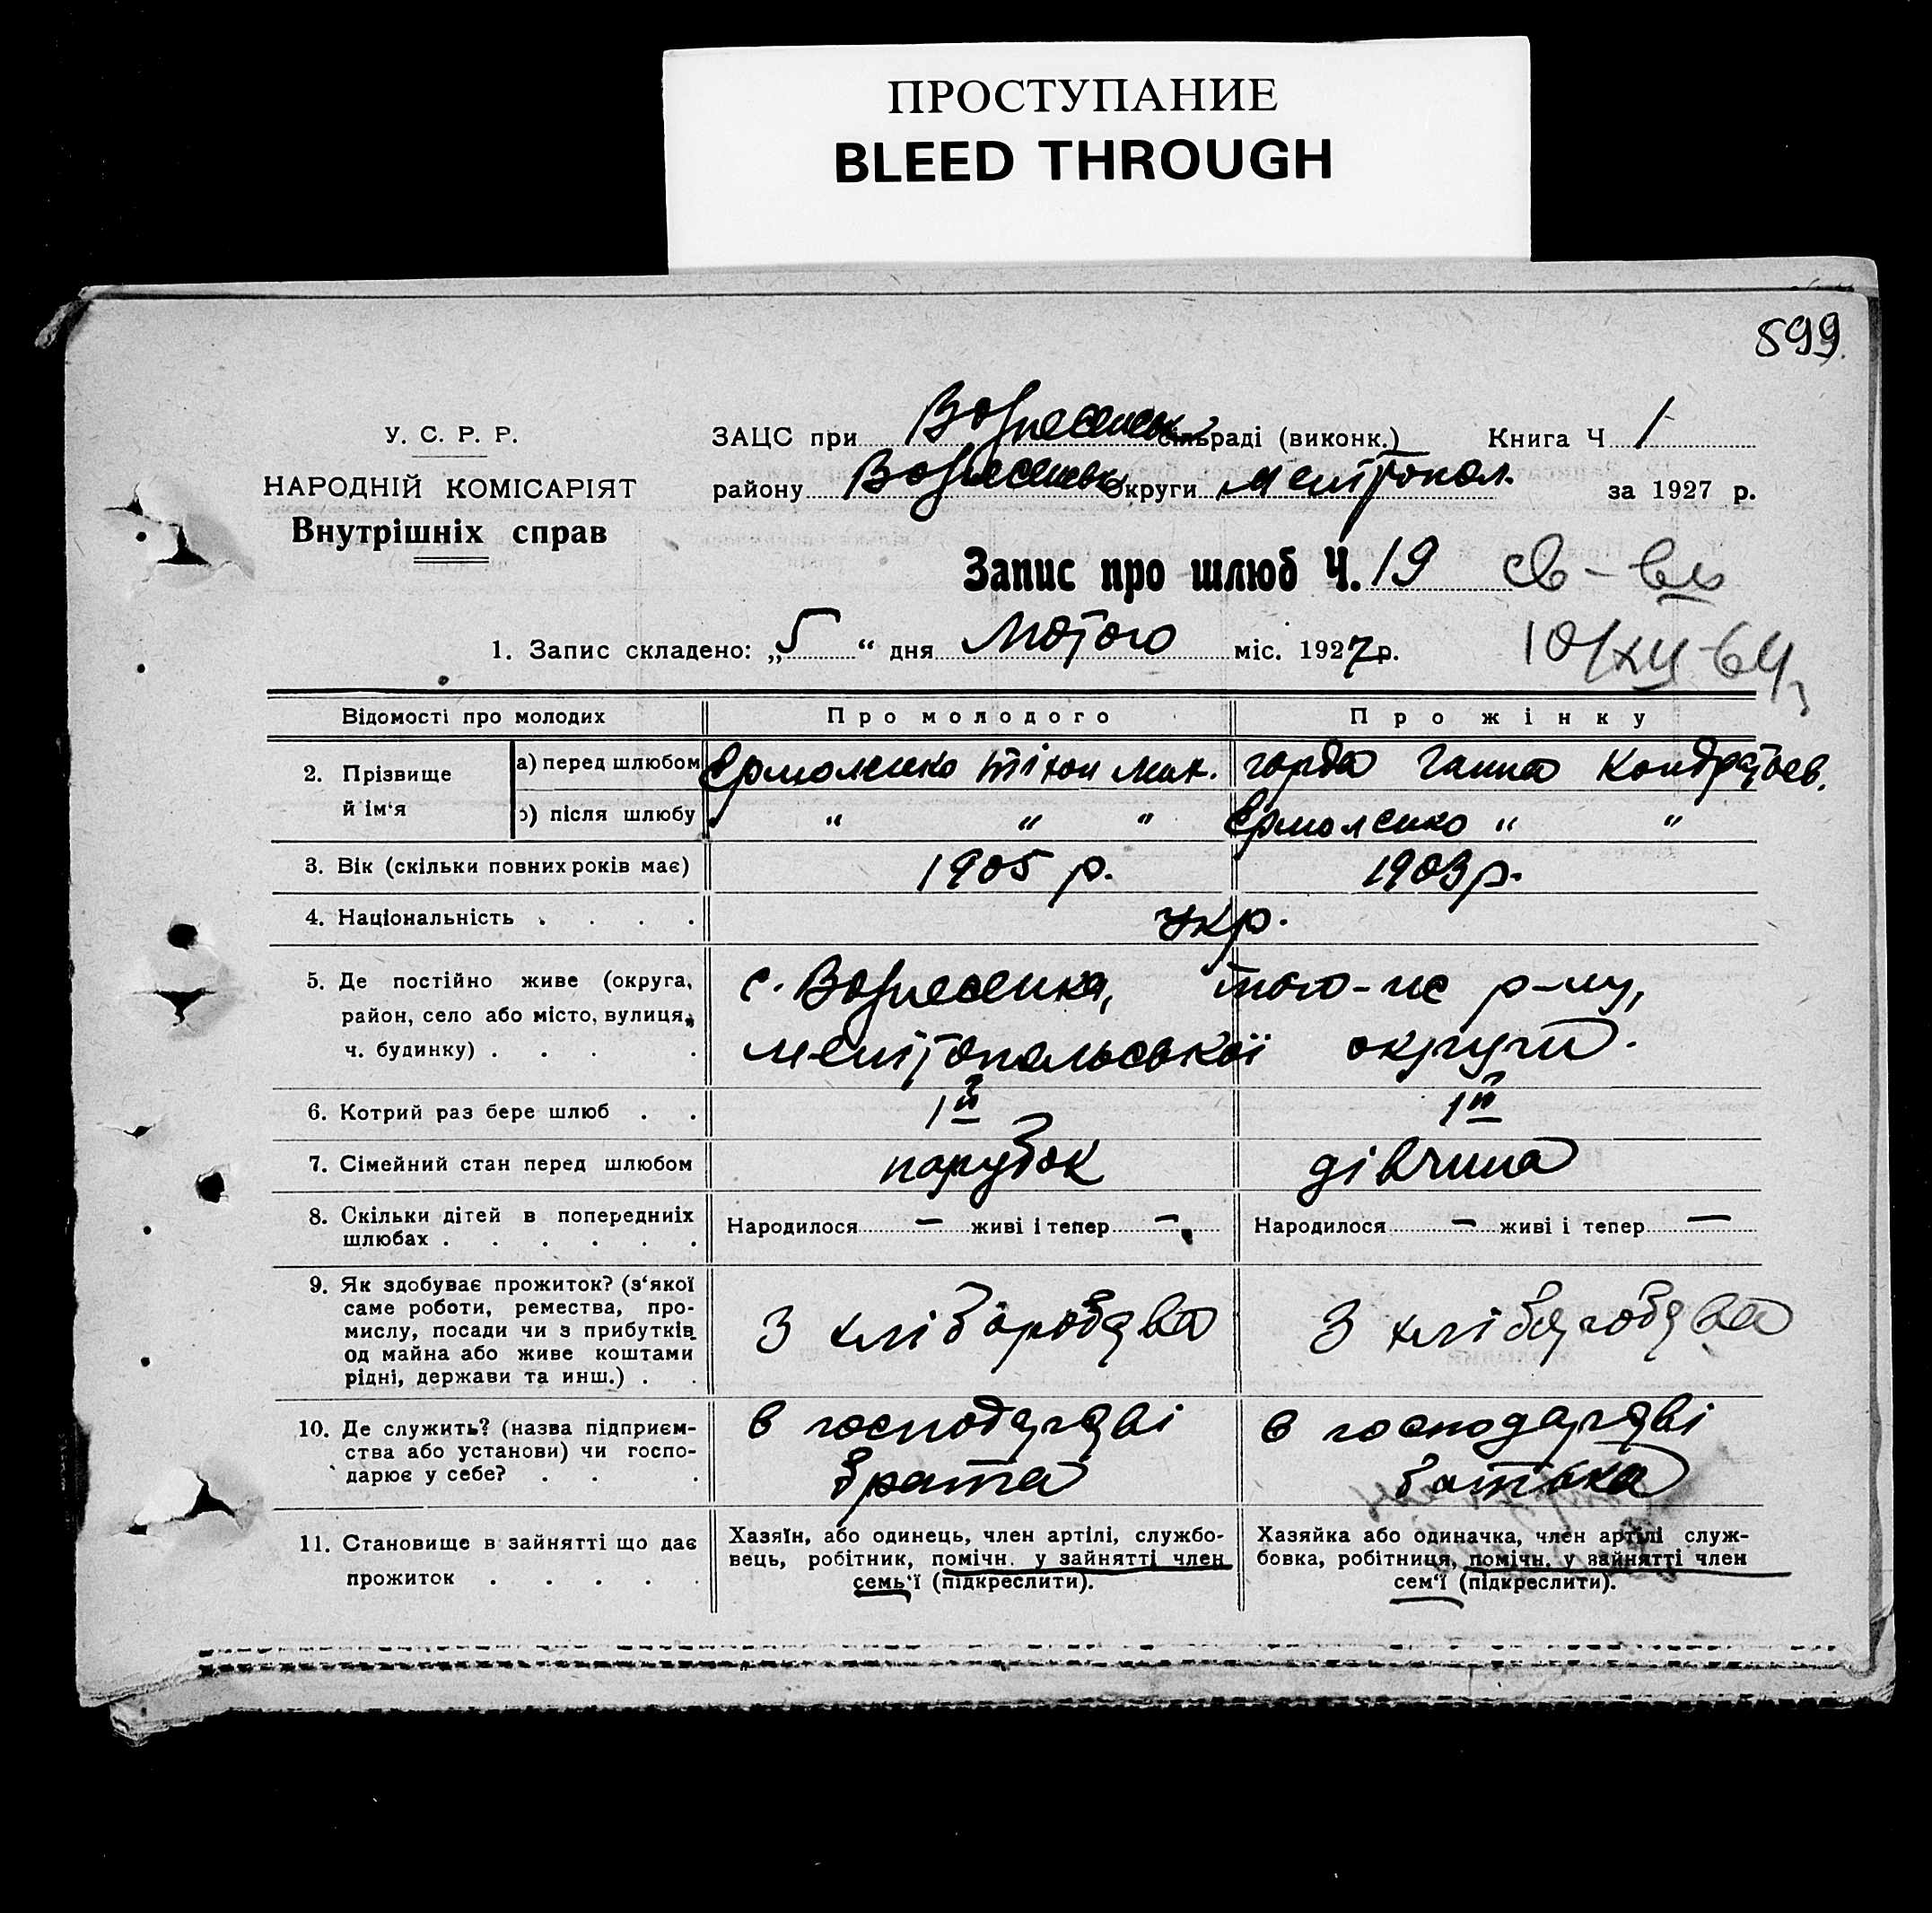 ПРОСТУПАНИЕ
BLEED THROUGH
599.
У. С. Р. Р.
НАРОДНІЙ КОМІСАРІЯТ
Внутрішніх справ
ЗАЦС при Вознесенськ сільраді (виконк.) Книга Ч 1
району Вознесенськ округи Мелітопол. за 1927 р.
Запис про шлюб Ч. 19
10/XII-64
1. Запис складено: „5“ дня Лютого міс. 1927 р.
Відомості про молодих Про молодого Про жінку
2. Прізвище й ім‘я
а) перед шлюбом Єрмоленко Тіхон Мит. Горда Ганна Кондратьев.
б) після шлюбу " " " Єрмоленко " "
3. Вік (скільки повних років має) 1905 р. 1903 р.
4. Національність . . . . укр.
5. Де постійно живе (округа, район, село або місто, вулиця, ч. будинку) . . . .
с. Вознесенка, того-же р-ну,
Мелітопольської округи.
6. Котрий раз бере шлюб . . 1й 1й
7. Сімейний стан перед шлюбом парубок дівчина
8. Скільки дітей в попередниіх шлюбах . . . . . .
Народилося — живі і тепер — Народилося — живі і тепер —
9. Як здобуває прожиток? (з‘якої
саме роботи, ремества, про-
мислу, посади чи з прибутків
од майна або живе коштами
рідні, держави та инш.) . .
З хліборобства З хліборобства
10. Де служить? (назва підприєм-
ства або установи) чи госпо-
дарює у себе? . . .
в господарстві брата
в господарстві батька
11. Становище в зайнятті що дає
прожиток . . . . .
Хазяїн, або одинець, член артілі, службо-
вець, робітник, помічн. у зайнятті член
семь‘ї (підкреслити).
Хазяйка або одиначка, член артілі служ-
бовка, робітниця, помічн. у зайнятті член
сем‘ї (підкреслити).